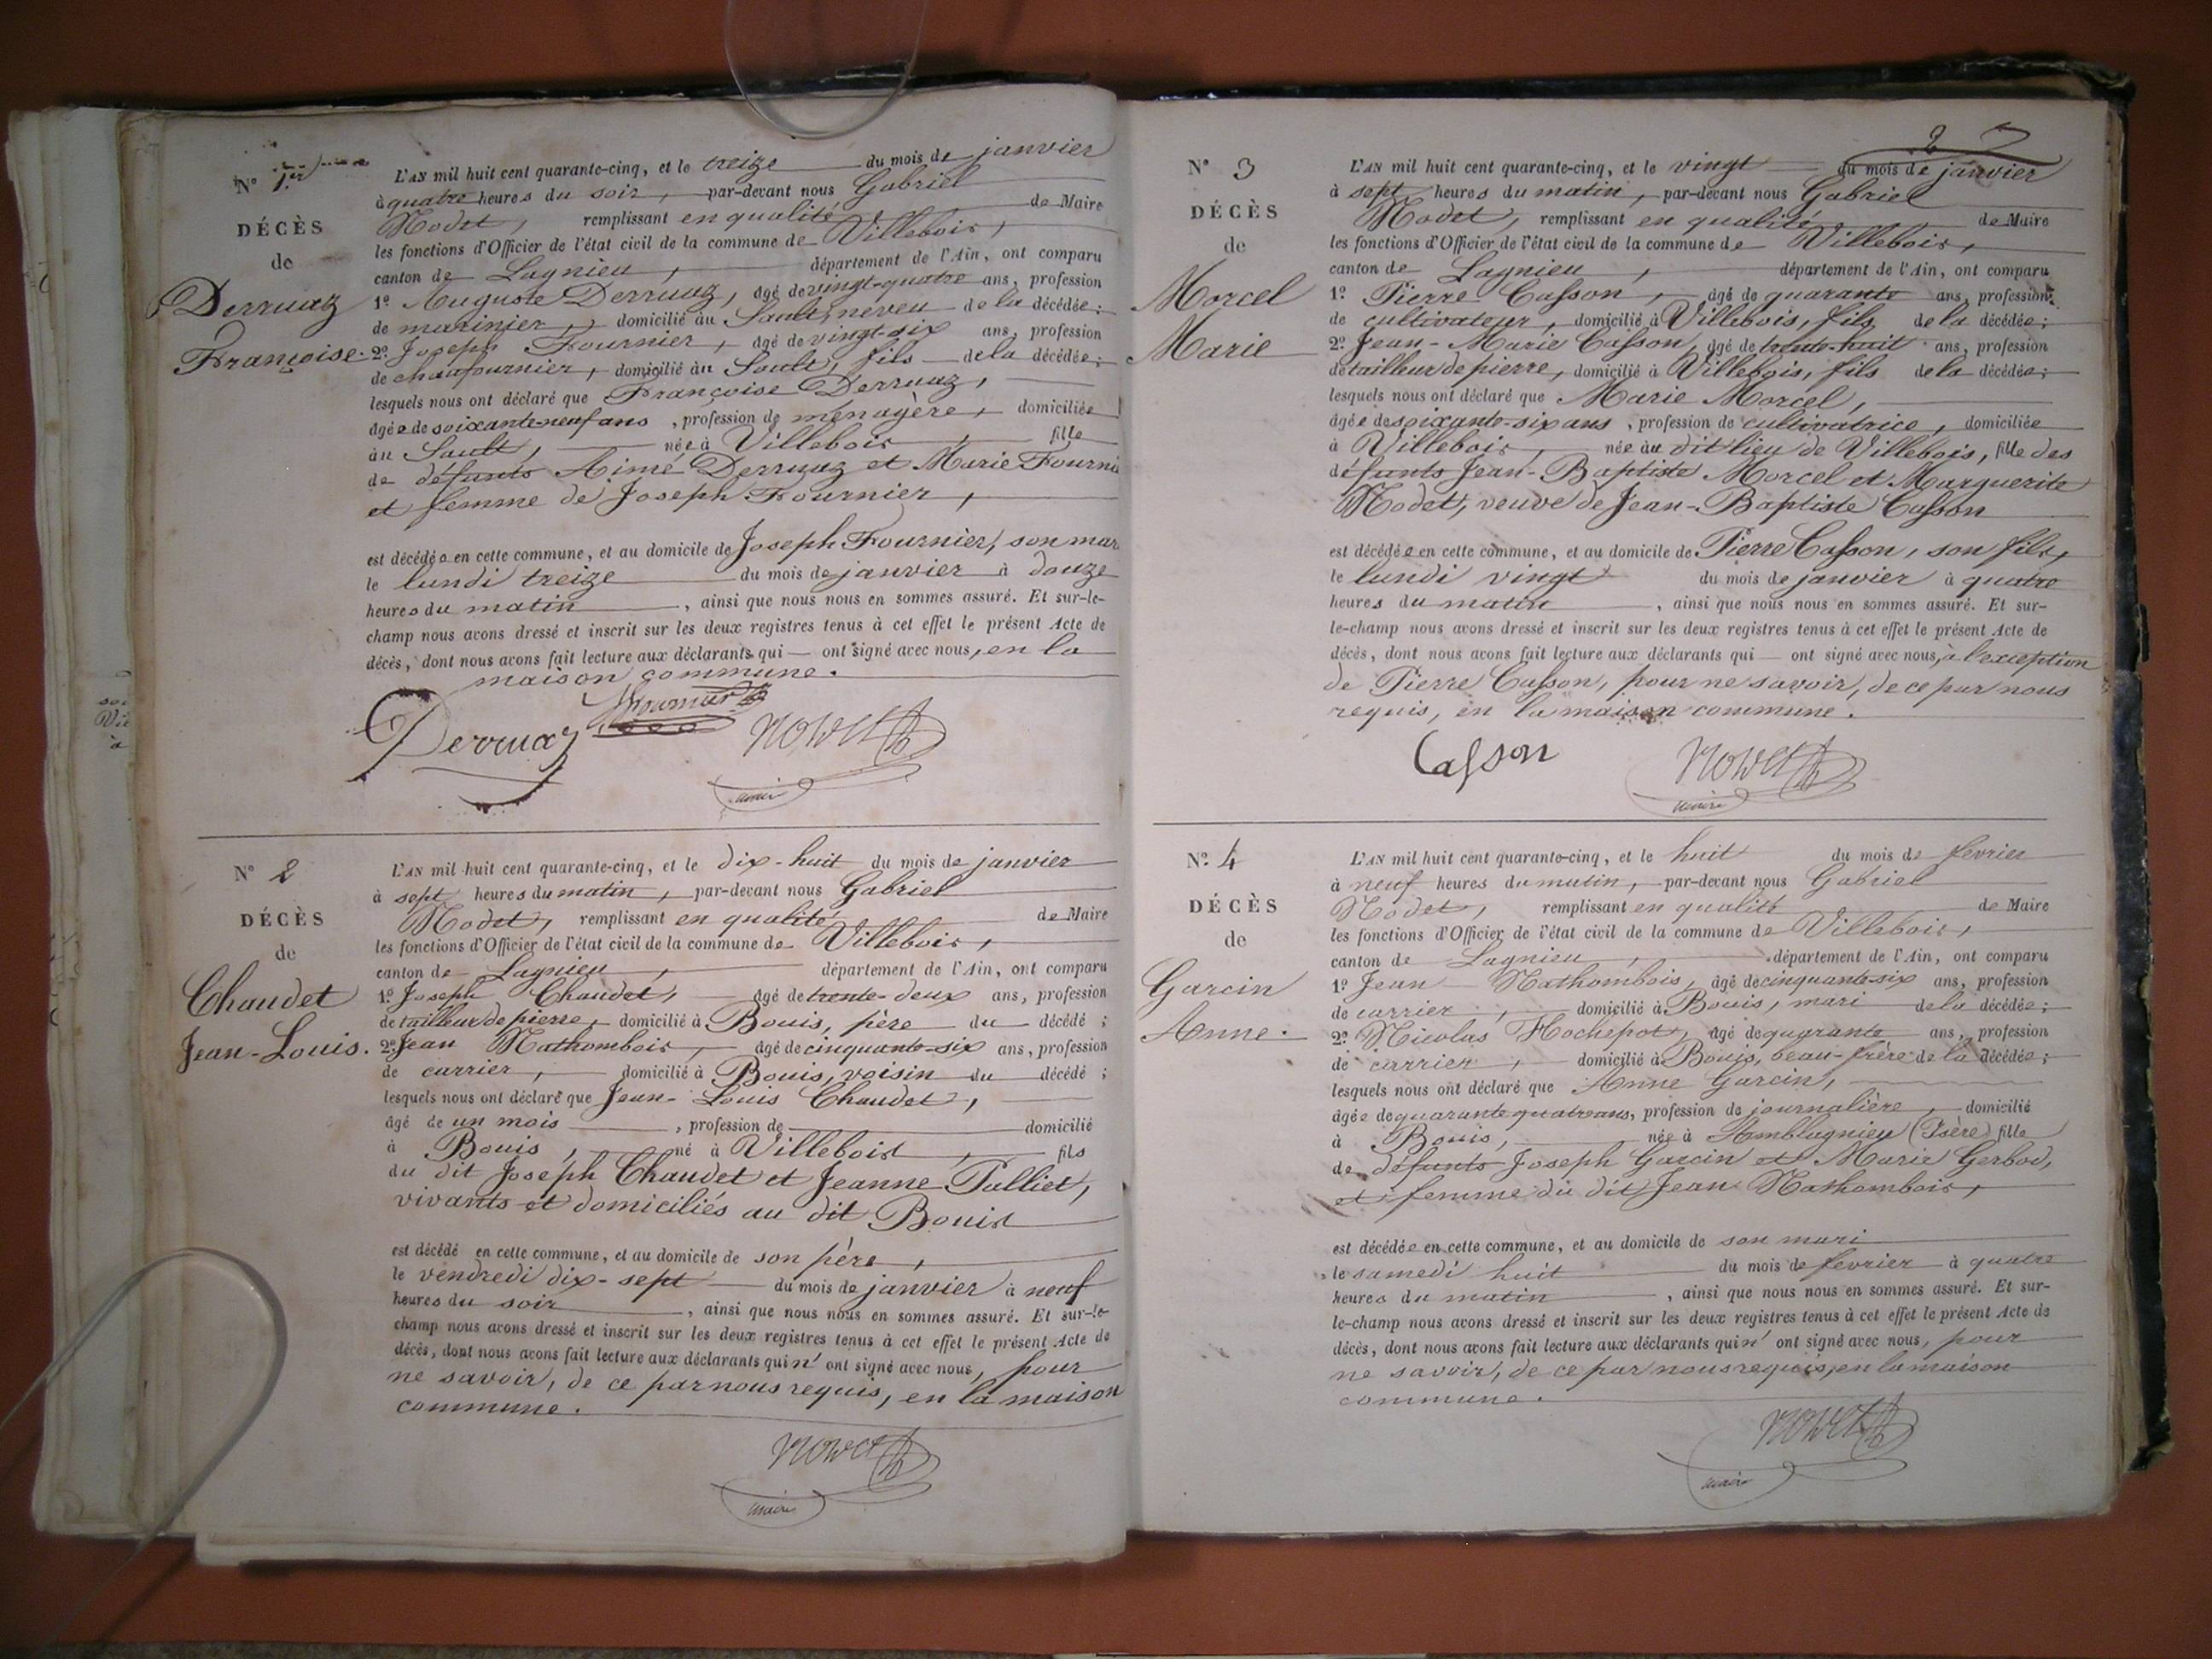 N° 1er
DÉCÈS
de
Derruaz
Françoise.
L'AN mil huit cent quarante-cinq, et le treize du mois de janvier
à quatre heures du soir, par-devant nous Gabriel
Nodet, remplissant en qualité de Maire
les fonctions d'Officier de l'état civil de la commune de Villebois,
canton de Lagnieu, département de l'Ain, ont comparu
1° Auguste Derruaz, âgé de vingt-quatre ans, profession
de marinier, domicilié au Sault, neveu de la décédée;
2° Joseph Fournier, âgé de vingt-six ans, profession
de chaufournier, domicilié au Sault, fils de la décédée;
lesquels nous ont déclaré que Françoise Derruaz,
âgée de soixante-neuf ans, profession de ménagère, domiciliée
au Sault, née à Villebois, fille
de défunts Aimé Derruaz et Marie Fourni
et femme de Joseph Fournier,
est décédée en cette commune, et au domicile de Joseph Fournier, son mar
le lundi treize du mois de janvier à douze
heures du matin, ainsi que nous nous en sommes assuré. Et sur-le-
champ nous avons dressé et inscrit sur les deux registres tenus à cet effet le présent Acte de
décès, dont nous avons fait lecture aux déclarants qui ont signé avec nous, en la
maison commune.
Derruaz Fournier Nodet
maire
N° 2
DÉCÈS
de
Chaudet
Jean-Louis.
L'AN mil huit cent quarante-cinq, et le dix-huit du mois de janvier
à sept heures du matin, par-devant nous Gabriel
Nodet, remplissant en qualité de Maire
les fonctions d'Officier de l'état civil de la commune de Villebois,
canton de Lagnieu, département de l'Ain, ont comparu
1° Joseph Chaudet, âgé de trente-deux ans, profession
de tailleur de pierre, domicilié à Bouis, père du décédé;
2° Jean Nathombois, âgé de cinquante-six ans, profession
de carrier, domicilié à Bouis, voisin du décédé;
lesquels nous ont déclaré que Jean-Louis Chaudet,
âgé de un mois, profession de domicilié
à Bouis, né à Villebois, fils
du dit Joseph Chaudet et Jeanne Palliet,
vivants et domiciliés au dit Bouis
est décédé en cette commune, et au domicile de son père,
le vendredi dix-sept du mois de janvier à neuf
heures du soir, ainsi que nous nous en sommes assuré. Et sur-le-
champ nous avons dressé et inscrit sur les deux registres tenus à cet effet le présent Acte de
décès, dont nous avons fait lecture aux déclarants qui n'ont signé avec nous, pour
ne savoir, de ce par nous requis, en la maison
commune.
Nodet
maire
2
N° 3
DÉCÈS
de
Morcel
Marie
L'AN mil huit cent quarante-cinq, et le vingt du mois de janvier
à sept heures du matin, par-devant nous Gabriel
Nodet, remplissant en qualité de Maire
les fonctions d'Officier de l'état civil de la commune de Villebois,
canton de Lagnieu, département de l'Ain, ont comparu
1° Pierre Casson, âgé de quarante ans, profession
de cultivateur, domicilié à Villebois, fils de la décédée;
2° Jean-Marie Casson, âgé de trente-huit ans, profession
de tailleur de pierre, domicilié à Villebois, fils de la décédée;
lesquels nous ont déclaré que Marie Morcel,
âgée de soixante-six ans, profession de cultivatrice, domiciliée
à Villebois, née au dit lieu de Villebois, fille des
défunts Jean-Baptiste Morcel et Marguerite
Nodet, veuve de Jean-Baptiste Casson
est décédée en cette commune, et au domicile de Pierre Casson, son fils,
le lundi vingt du mois de janvier à quatre
heures du matin, ainsi que nous nous en sommes assuré. Et sur-
le-champ nous avons dressé et inscrit sur les deux registres tenus à cet effet le présent Acte de
décès, dont nous avons fait lecture aux déclarants qui ont signé avec nous, à l'exception
de Pierre Casson, pour ne savoir, de ce par nous
requis, en la maison commune.
Casson Nodet
maire
N° 4
DÉCÈS
de
Garcin
Anne.
L'AN mil huit cent quarante-cinq, et le huit du mois de fevrier
à neuf heures du matin, par-devant nous Gabriel
Nodet, remplissant en qualité de Maire
les fonctions d'Officier de l'état civil de la commune de Villebois,
canton de Lagnieu, département de l'Ain, ont comparu
1° Jean Nathombois, âgé de cinquante-six ans, profession
de carrier, domicilié à Bouis, mari de la décédée;
2° Nicolas Hochepot, âgé de quarante ans, profession
de carrier, domicilié à Bouis, beau-frère de la décédée;
lesquels nous ont déclaré que Anne Garcin,
âgée de quarante quatre ans, profession de journalière, domicilié
à Bouis, née à Amblagnieu (Isère) fille
de défunts Joseph Garcin et Marie Gerbod,
et femme du dit Jean Nathombois,
est décédée en cette commune, et au domicile de son mari
le samedi huit du mois de fevrier à quatre
heures du matin, ainsi que nous nous en sommes assuré. Et sur-
le-champ nous avons dressé et inscrit sur les deux registres tenus à cet effet le présent Acte de
décès, dont nous avons fait lecture aux déclarants qui n'ont signé avec nous, pour
ne savoir, de ce par nous requis, en la maison
commune.
Nodet
maire